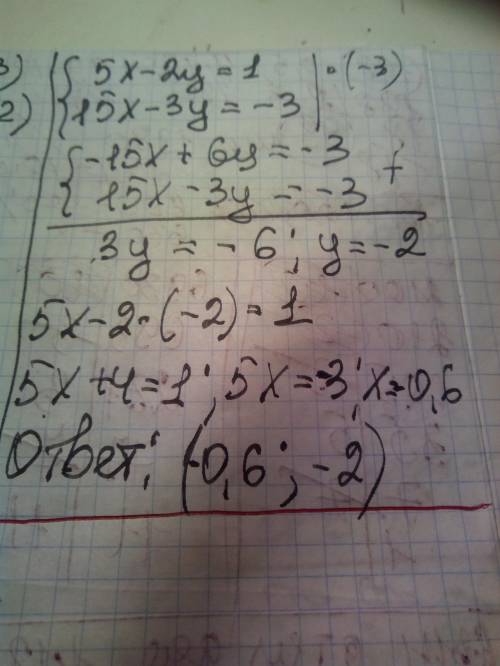 3) { 5x-2y=1 | ·(-3)
2) { 15x-3y=-3 |
{ -15x+6y=-3
{ 15x-3y=-3 +
3y=-6; y=-2
5x-2·(-2)=1
5x+4=1; 5x=-3; x=-0,6
Ответ: (-0,6; -2)